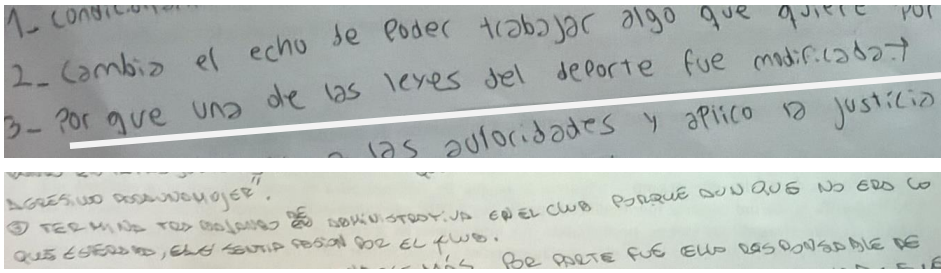 1_ condicion
2_ Cambio el echo de poder trabajar algo que quiere por
3_ Por que una de las leyes del deporte fue modificada.→
las autoridades y aplico la justicia
AGRESIVO PARA UNA MUJER".
③ TERMINA TRABAJANDO DE ADMINISTRATIVA EN EL CLUB PORQUE AUN QUE NO ERA LO
QUE ESPERABA, ELLA SENTIA PASION POR EL CLUB.
MÁS POR PARTE FUE ELLA RESPONSABLE DE